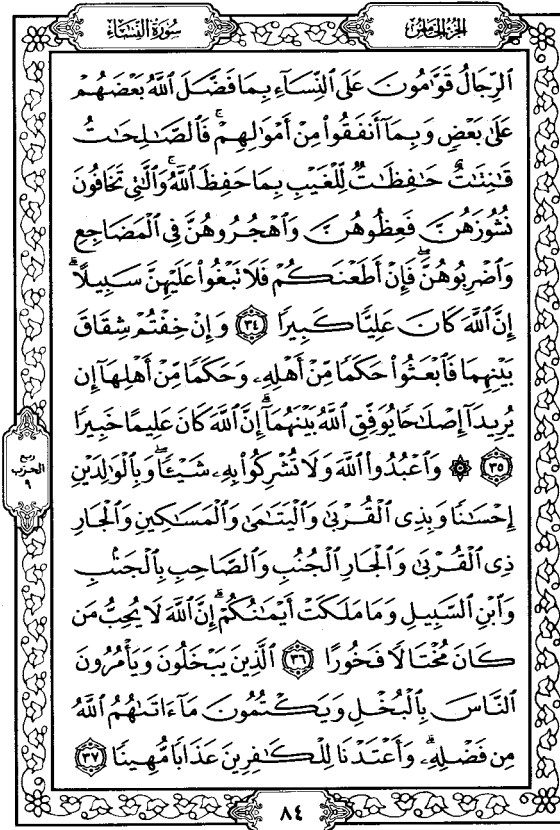 سُورَةُ النِّسَاءِ
الجُزْءُ الخَامِسُ
ٱلرِّجَالُ قَوَّٰمُونَ عَلَى ٱلنِّسَآءِ بِمَا فَضَّلَ ٱللَّهُ بَعْضَهُمْ
عَلَىٰ بَعْضٍ وَبِمَآ أَنفَقُوا۟ مِنْ أَمْوَٰلِهِمْ ۚ فَٱلصَّـٰلِحَـٰتُ
قَـٰنِتَـٰتٌ حَـٰفِظَـٰتٌ لِّلْغَيْبِ بِمَا حَفِظَ ٱللَّهُ ۚ وَٱلَّـٰتِى تَخَافُونَ
نُشُوزَهُنَّ فَعِظُوهُنَّ وَٱهْجُرُوهُنَّ فِى ٱلْمَضَاجِعِ
وَٱضْرِبُوهُنَّ ۖ فَإِنْ أَطَعْنَكُمْ فَلَا تَبْغُوا۟ عَلَيْهِنَّ سَبِيلًا ۗ
إِنَّ ٱللَّهَ كَانَ عَلِيًّا كَبِيرًا ٣٤ وَإِنْ خِفْتُمْ شِقَاقَ
بَيْنِهِمَا فَٱبْعَثُوا۟ حَكَمًا مِّنْ أَهْلِهِۦ وَحَكَمًا مِّنْ أَهْلِهَآ إِن
يُرِيدَآ إِصْلَـٰحًا يُوَفِّقِ ٱللَّهُ بَيْنَهُمَآ ۗ إِنَّ ٱللَّهَ كَانَ عَلِيمًا خَبِيرًا
٣٥ ۞ وَٱعْبُدُوا۟ ٱللَّهَ وَلَا تُشْرِكُوا۟ بِهِۦ شَيْـًٔا ۖ وَبِٱلْوَٰلِدَيْنِ
إِحْسَـٰنًا وَبِذِى ٱلْقُرْبَىٰ وَٱلْيَتَـٰمَىٰ وَٱلْمَسَـٰكِينِ وَٱلْجَارِ
ذِى ٱلْقُرْبَىٰ وَٱلْجَارِ ٱلْجُنُبِ وَٱلصَّاحِبِ بِٱلْجَنۢبِ
وَٱبْنِ ٱلسَّبِيلِ وَمَا مَلَكَتْ أَيْمَـٰنُكُمْ ۗ إِنَّ ٱللَّهَ لَا يُحِبُّ مَن
كَانَ مُخْتَالًا فَخُورًا ٣٦ ٱلَّذِينَ يَبْخَلُونَ وَيَأْمُرُونَ
ٱلنَّاسَ بِٱلْبُخْلِ وَيَكْتُمُونَ مَآ ءَاتَىٰهُمُ ٱللَّهُ
مِن فَضْلِهِۦ ۗ وَأَعْتَدْنَا لِلْكَـٰفِرِينَ عَذَابًا مُّهِينًا ٣٧
ربع
الحزب
٩
٨٤